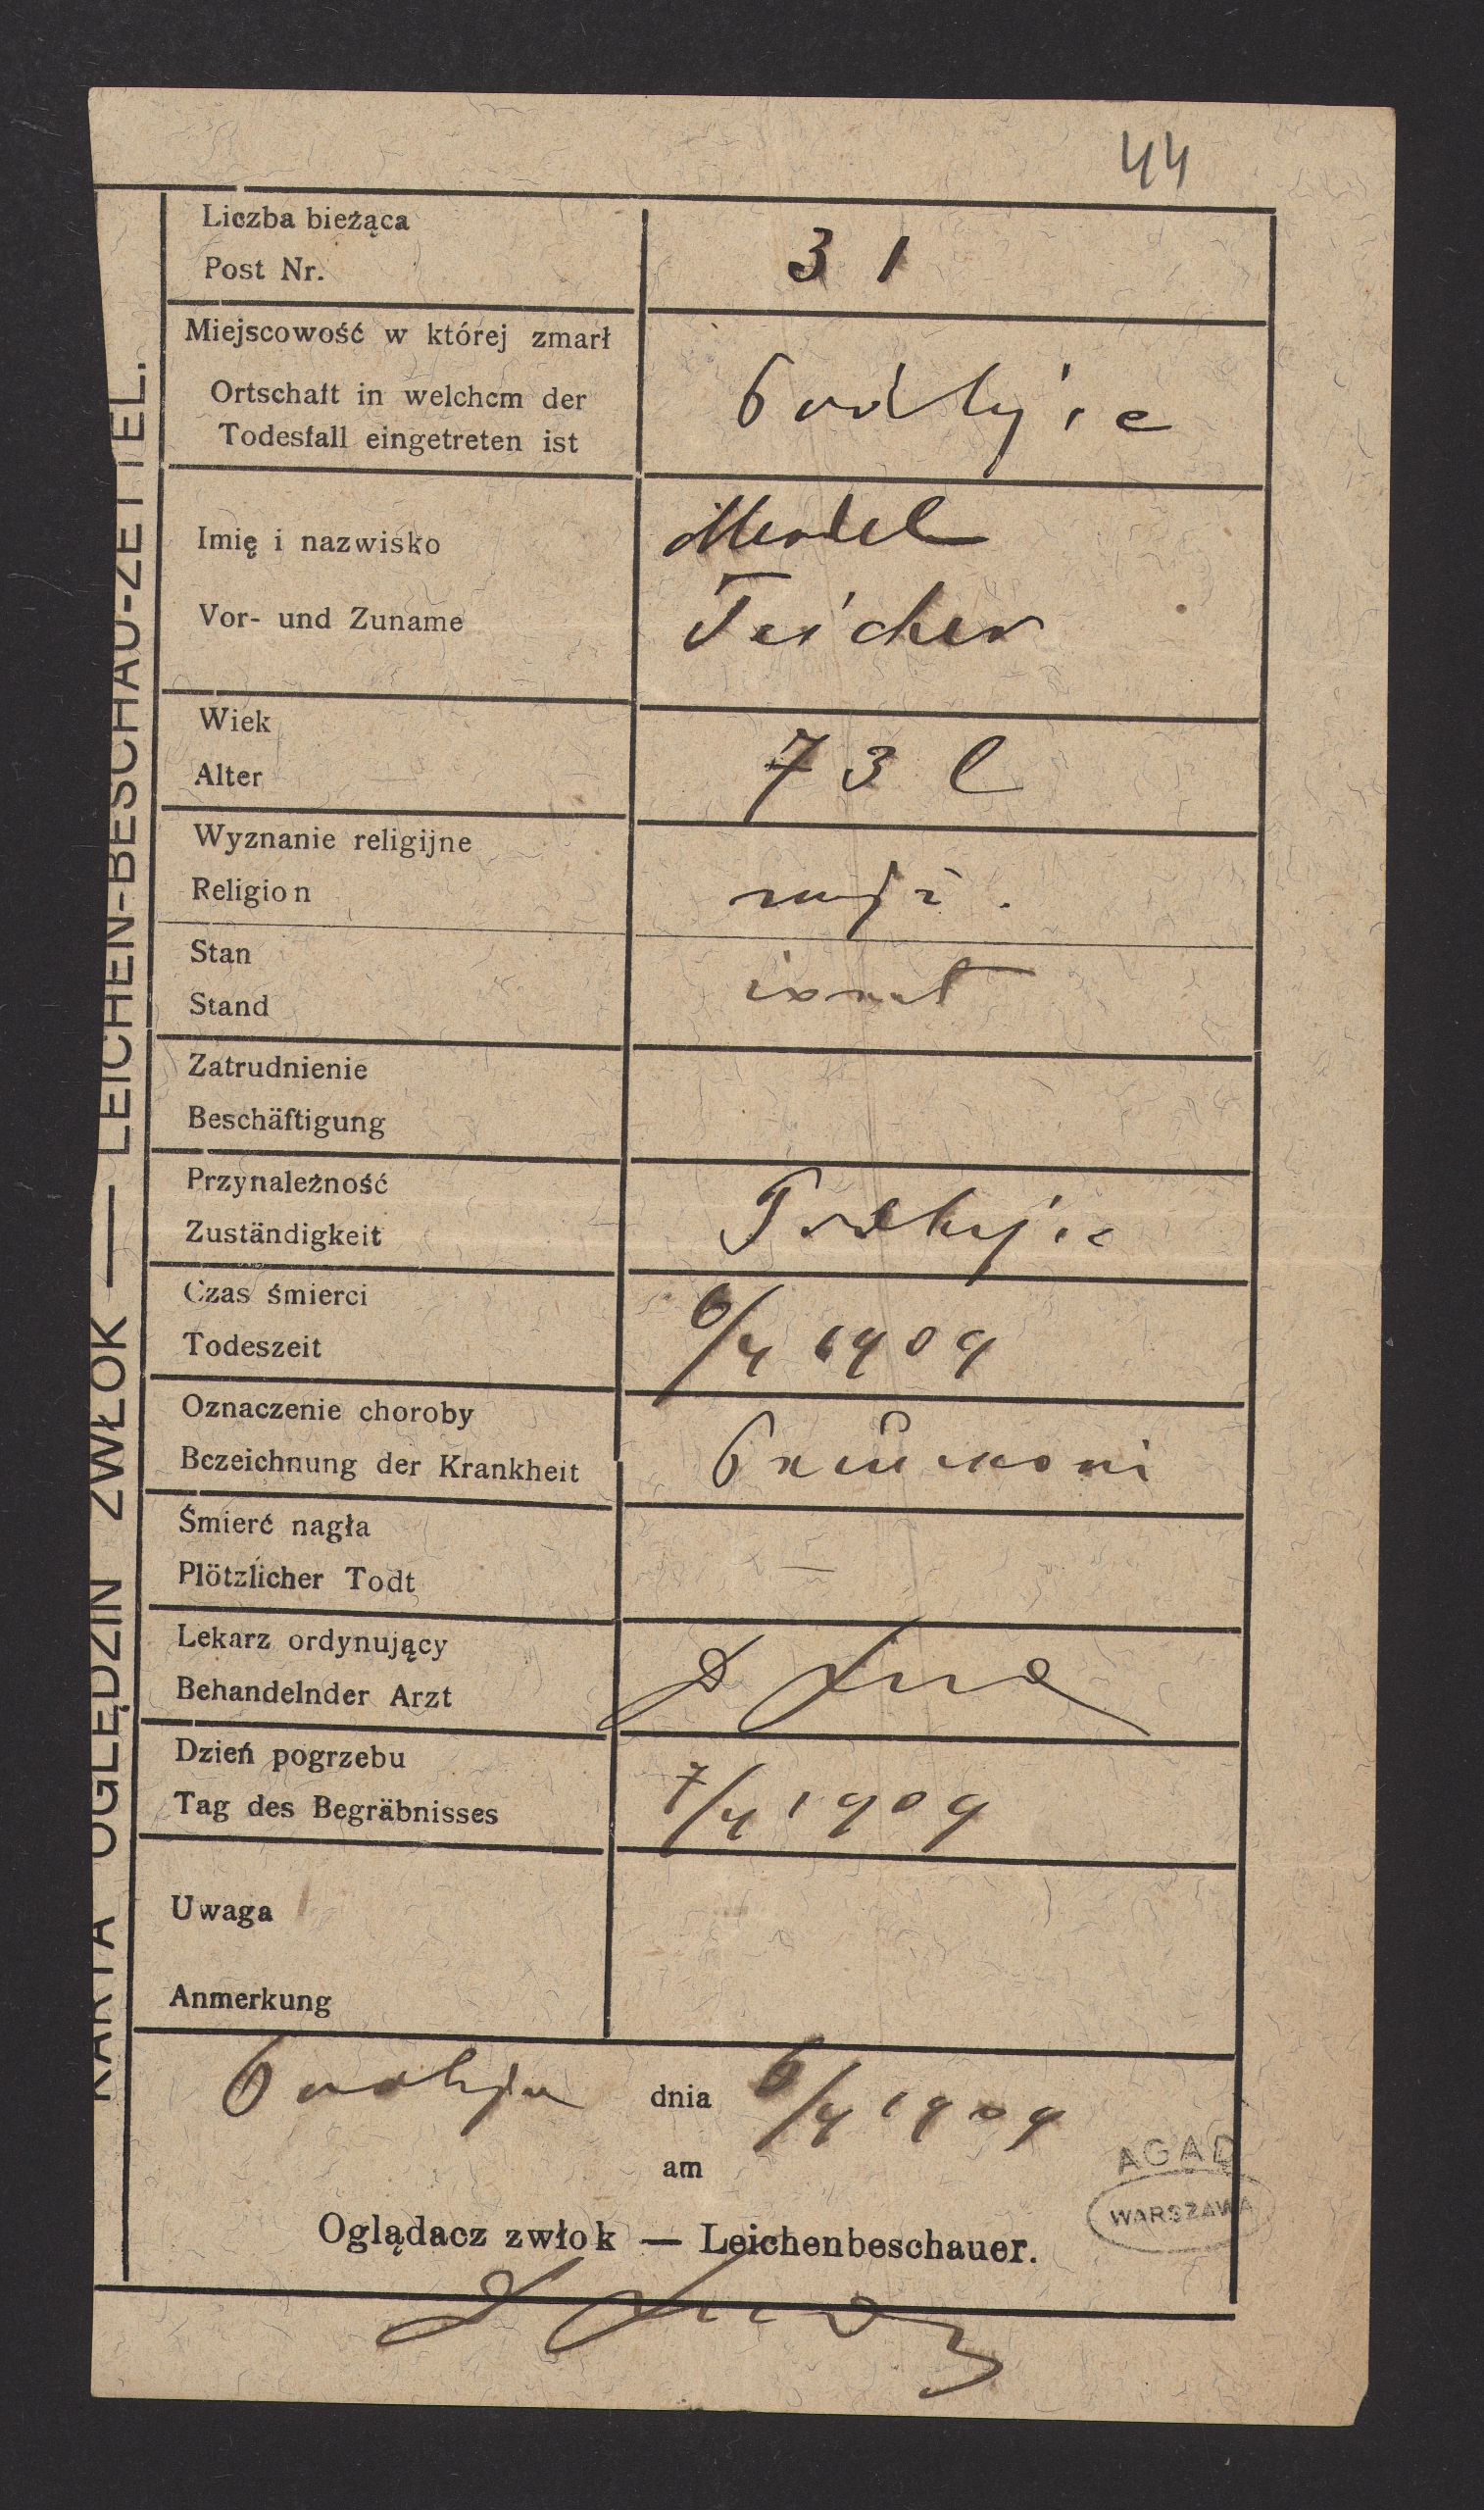 44
KARTA OGLĘDZIN ZWŁOK — LEICHEN-BESCHAU-ZETTEL.
Liczba bieżąca
Post Nr.
31
Miejscowość w której zmarł
Ortschaft in welchem der
Todesfall eingetreten ist
Podhajce
Imię i nazwisko
Vor- und Zuname
Mendel
Teicher
Wiek
Alter
73 l
Wyznanie religijne
Religion
mojż.
Stan
Stand
żonat
Zatrudnienie
Beschäftigung
Przynależność
Zuständigkeit
Podhajce
Czas śmierci
Todeszeit
6/4 1909
Oznaczenie choroby
Bezeichnung der Krankheit
Śmierć nagła
Plötzlicher Todt
—
Lekarz ordynujący
Behandelnder Arzt
Dzień pogrzebu
Tag des Begräbnisses
7/4 1909
Uwaga
Anmerkung
Podhajce dnia 6/4 1909
am
AGAD
WARSZAWA
Oglądacz zwłok — Leichenbeschauer.